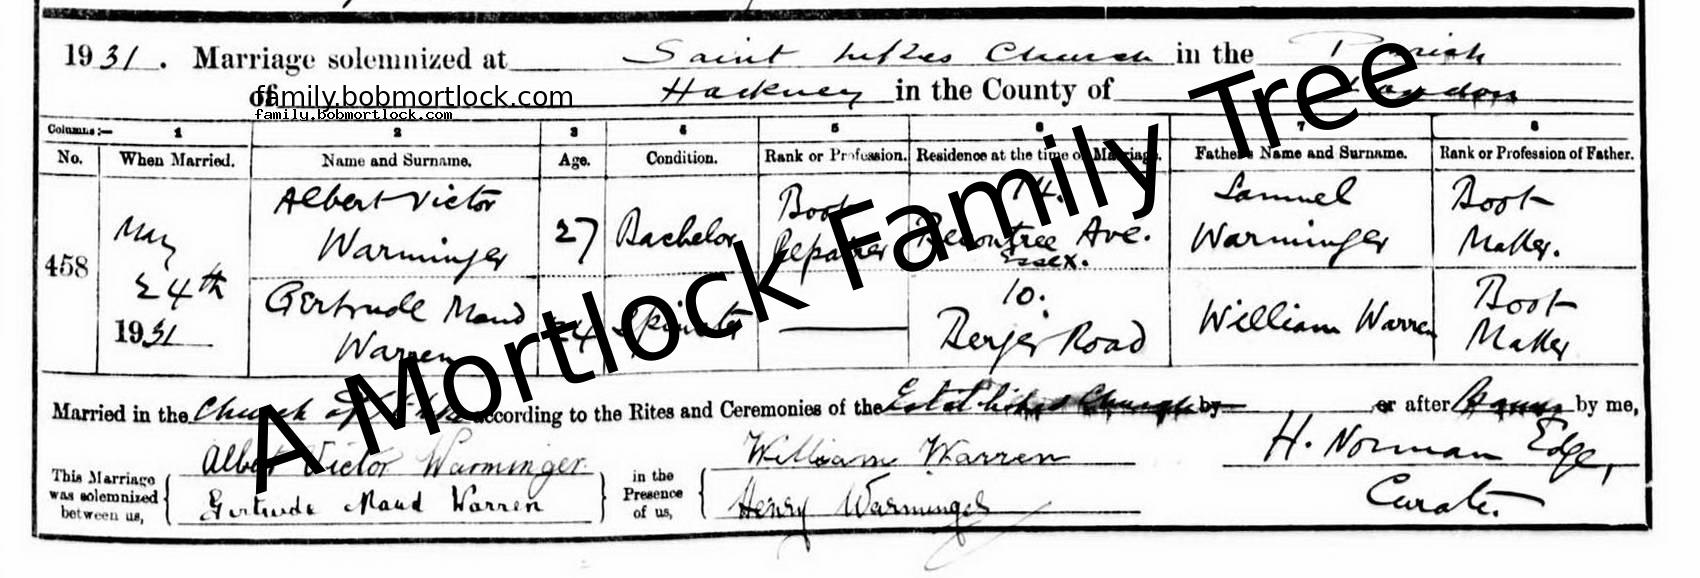 1931. Marriage solemnized at Saint Lukes Church in the Parish
of Hackney in the County of London
family.bobmortlock.com
family.bobmortlock.com
Columns:— 1 2 3 4 5 6 7 8
No. When Married. Name and Surname. Age. Condition. Rank or Profession. Residence at the time of Marriage. Father's Name and Surname. Rank or Profession of Father.
458 May 24th 1931
Albert Victor Warminger 27 Bachelor Boot Repairer 74. Becontree Ave. Essex. Samuel Warminger Boot Maker.
Gertrude Maud Warren 24 Spinster —— 10. Berger Road William Warren Boot Maker
Married in the Church of St Luke according to the Rites and Ceremonies of the Established Church by or after Banns by me,
This Marriage was solemnized between us, Albert Victor Warminger Gertrude Maud Warren
in the Presence of us, William Warren Henry Warminger
H. Norman Edge, Curate.
A Mortlock Family Tree